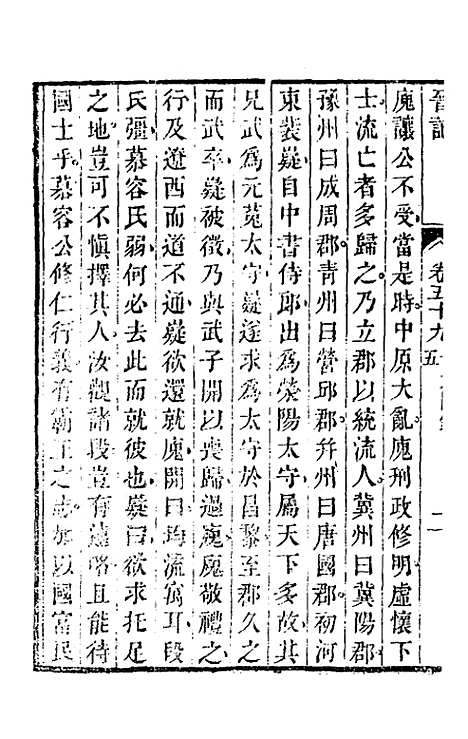 晉記
卷五十九
五
廆讓公不受當是時中原大亂廆刑政修明虛懷下
士流亡者多歸之乃立郡以統流人冀州曰冀陽郡
豫州曰成周郡青州曰營邱郡幷州曰唐國郡初河
東裴嶷自中書侍郎出爲滎陽太守屬天下多故其
兄武爲元菟太守嶷遂求爲太守於昌黎至郡久之
而武卒嶷被徵乃與武子開以喪歸過廆廆敬禮之
行及遼西而道不通嶷欲還就廆開曰均流寓耳段
氏彊慕容氏弱何必去此而就彼也嶷曰欲求托足
之地豈可不愼擇其人汝觀諸段豈有遠略且能待
國士乎慕容公修仁行義有霸王之志加以國富民